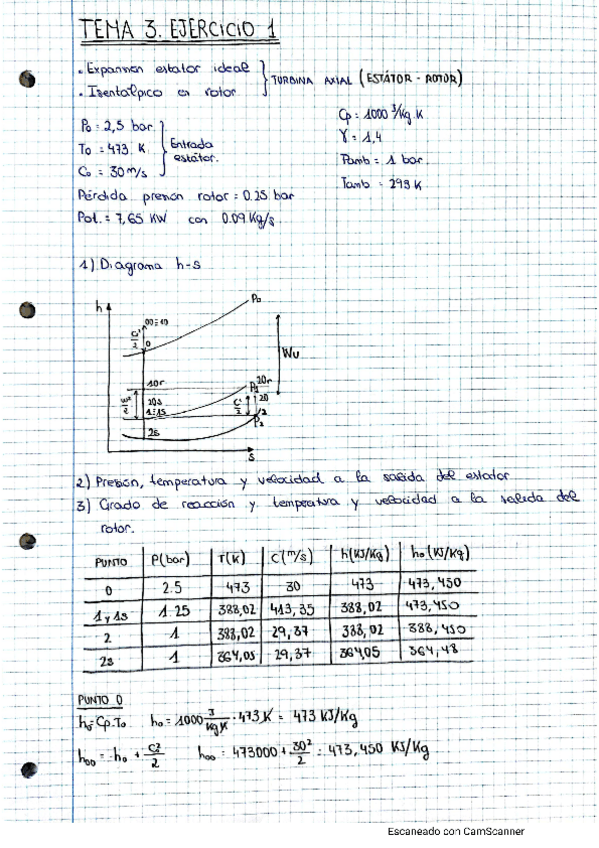 TEMA 3. EJERCICIO 1
· Expansion estator ideal
· Isentálpico en rotor
TURBINA AXIAL (ESTÁTOR - ROTOR)
P0 = 2,5 bar
T0 = 473 K
C0 = 30 m/s
Entrada estátor.
Cp = 1000 J/Kg.K
γ = 1,4
Pamb = 1 bar
Tamb = 293 K
Pérdida presión rotor = 0.25 bar
Pot. = 7,65 KW con 0.09 Kg/s
1) Diagrama h-s
h
P0
00≡10
C²/2
0
Wu
10r
P1
20r
20s
1≡1s
W²/2
C²/2
20
2
P2
2s
s
2) Presión, temperatura y velocidad a la salida del estator
3) Grado de reacción y temperatura y velocidad a la salida del
rotor.
PUNTO P(bar) T(K) C(m/s) h(KJ/Kg) h0(KJ/Kg)
0 2.5 473 30 473 473,450
1 y 1s 1.25 388,02 413,35 388,02 473,450
2 1 388,02 29,37 388,02 388,450
2s 1 364,05 29,37 364,05 364,48
PUNTO 0
h0=Cp.T0 h0 = 1000 J/KgK · 473 K = 473 KJ/Kg
h00 = h0 + C²/2 h00 = 473000 + 30²/2 = 473,450 KJ/Kg
Escaneado con CamScanner